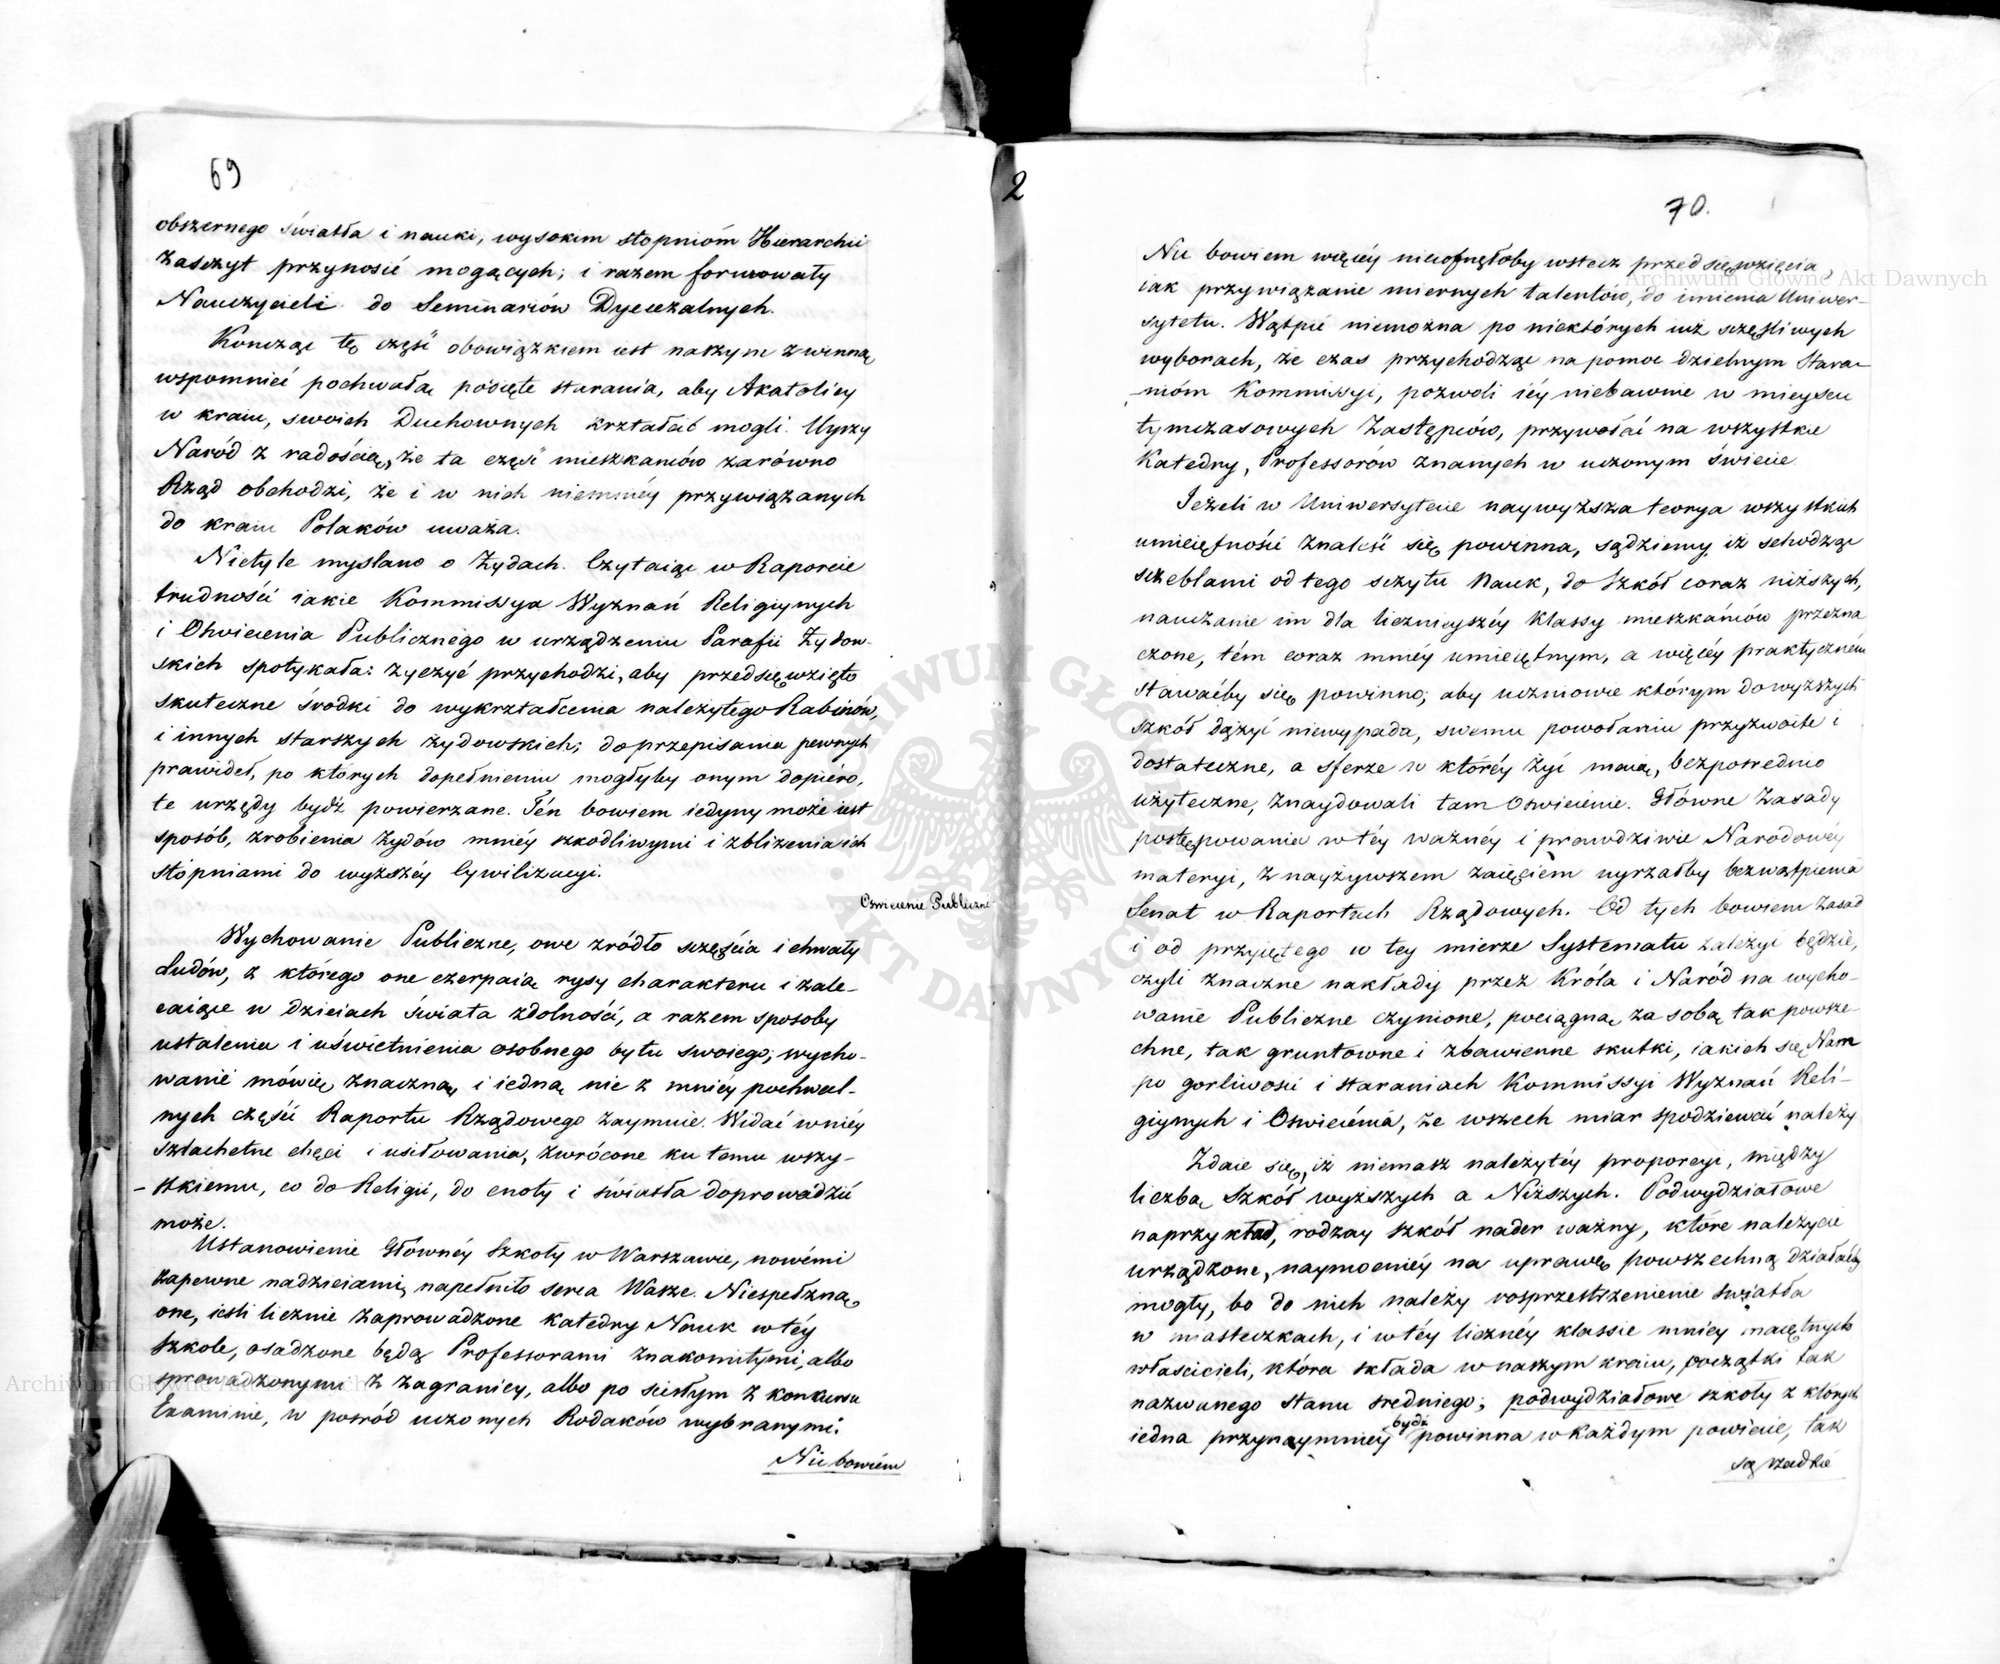 69
obszernego światła i nauki, wysokim stopnióm Hierarchii
Zaszczyt przynosić mogących; i razem formowały
Nauczycieli do Seminariów Dyecezalnych.
Kończąc tę część obowiązkiem iest naszym z winną
wspomnieć pochwałą poięte starania, aby Akatolicy
w kraiu, swoich Duchownych kształcić mogli. Uyrzy
Naród z radością, że ta część mieszkańców zarówno
Rząd obchodzi, że i w nich niemniéy przywiązanych
do kraiu Polaków uważa.
Nietyle myslano o Żydach. Czytaiąc w Raporcie
trudności iakie Kommissya Wyznań Religiynych
i Oświecenia Publicznego w urządzeniu Parafii Żydow-
skich spotykała: życzyć przychodzi, aby przedsięwzięto
skuteczne środki do wykrztałcenia należytego Rabinów,
i innych starszych żydowskich; do przepisania pewnych
prawideł, po których dopełnieniu mogłyby onym dopiéro,
te urzędy bydź powierzane. Tén bowiem iedyny może iest
sposób, zrobienia żydów mniéy szkodliwymi i zbliżenia ich
stopniami do wyższéy Cywilizacyi.
Oświecenie Publiczne
Wychowanie Publiczne, owe zródło szczęścia i chwały
Ludów, z którego one czerpaią rysy charakteru i zale-
caiące w dzieiach świata zdolność, a razem sposoby
ustalenia i uświetnienia osobnego bytu swoiego; wycho-
wanié mówię znaczną, i iedną nie z mniéy pochwal-
nych części Raportu Rządowego zaymuie. Widać w niéy
szlachetne chęci i usiłowania, zwrócone ku temu wszy-
-stkiemu, co do Religii, do cnoty i światła doprowadzić
może.
Ustanowienie Głównéy Szkoły w Warszawie, nowémi
zapewne nadzieiami, napełniło serca Wasze. Niespełzną
one, iesli licznie zaprowadzone Katedry Nauk w téy
Szkole, osadzone będą Professorami znakomitymi, albo
sprowadzonymi z zagranicy, albo po scisłym z konkursu
Examinie, w posród uczonych Rodaków wybranymi.
Nic bowiém
2
70.
Nic bowiem więcéy nieco͏fnęłoby wstecz przedsięwzięcia,
iak przywiązanie miernych talentów, do imienia Uniwer-
sytetu. Wątpić niemożna po niektórych iuż szczęśliwych
wyborach, że czas przychodząc na pomoc dzielnym stara-
-nióm Kommissyi, pozwoli iéy niebawnie w mieyscu
tymczasowych Zastępców, przywołać na wszystkie
Katedry, Professorów znanych w uczonym świecie
Jeżeli w Uniwersytecie naywyższa teorya wszystkich
umieiętności znaleść się powinna, sądziemy iż schodząc
szczeblami od tego szczytu Nauk, do Szkół coraz niższych,
nauczanie im dla licznieyszéy Klassy mieszkańców przezna
czone, tém coraz mniéy umieiętnym, a więcéy praktyczném
stawaćby się powinno; aby uczniowie którym do wyższych
szkół dążyć niewypada, swemu powołaniu przyzwoite i
dostateczne, a sferze w któréy żyć maią, bezpośrednio
użyteczne, znaydowali tam oświecenie. Główne Zasady
postępowania w téy ważnéy i prawdziwie Narodowéy
materyi, z nayżywszem zaięciem uyrzałby bezwątpienia
Senat w Raportach Rządowych. Od tych bowiem Zasad
i od przyiętego w tey mierze Systematu zależyć będzie,
czyli znaczne nakłady przez Króla i Naród na wycho-
wanie Publiczne czynione, pociągną za sobą tak powsze-
chne, tak gruntowne i zbawienne skutki, iakich się Nam
po gorliwości i staraniach Kommissyi Wyznań Reli-
giynych i Oswiecénia, ze wszech miar spodziewać należy
Zdaie się, iż niemasz należytéy proporcyi, między
liczbą Szkół wyższych a Niższych. Podwydziałowe
naprzykład, rodzay szkół nader ważny, które należycie
urządzone, naymocniéy na uprawę powszechną działaćby
mogły, bo do nich należy rosprzestrzenienie światła
w miasteczkach, i w téy licznéy klassie mniey maiętnych
właścicieli, która składa w naszym kraiu, początki tak
nazwanego stanu średniego; podwydziałowe szkoły z których
iedna przynaymniéy bydź powinna w każdym powiecie, tak
są rzadkie